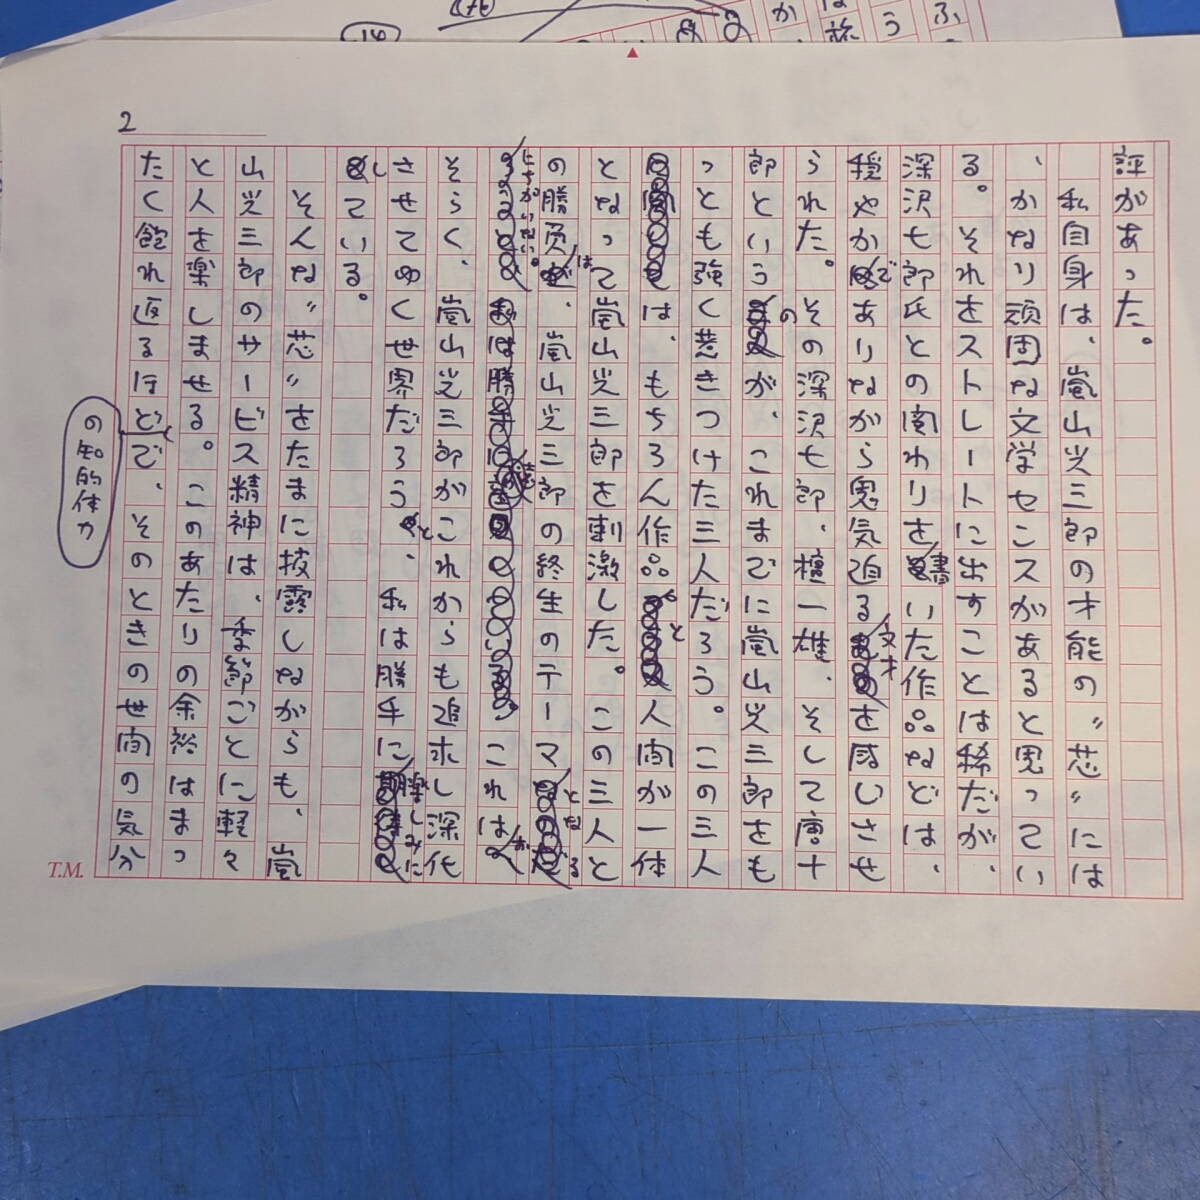 2
評があった。
私自身は、嵐山光三郎の才能の〝芯〟には
、かなり頑固な文学センスがあると思ってい
る。それをストレートに出すことは稀だが、
深沢七郎氏との関わりを書いた作品などは、
穏やかでありながら鬼気迫る文才を感じさせ
られた。その深沢七郎、檀一雄、そして唐十
郎というのが、これまでに嵐山光三郎をも
っとも強く惹きつけた三人だろう。この三人
は、もちろん作品と人間が一体
となって嵐山光三郎を刺激した。この三人と
の勝負は、嵐山光三郎の終生のテーマとなる
にちがいない。これはお
そらく、嵐山光三郎がこれからも追求し深化
させてゆく世界だろうと、私は勝手に楽しみに
している。
そんな〝芯〟をたまに披露しながらも、嵐
山光三郎のサービス精神は、季節ごとに軽々
と人を楽しませる。このあたりの余裕はまっ
たく飽れ返るほどの知的体力で、そのときの世間の気分
T.M.